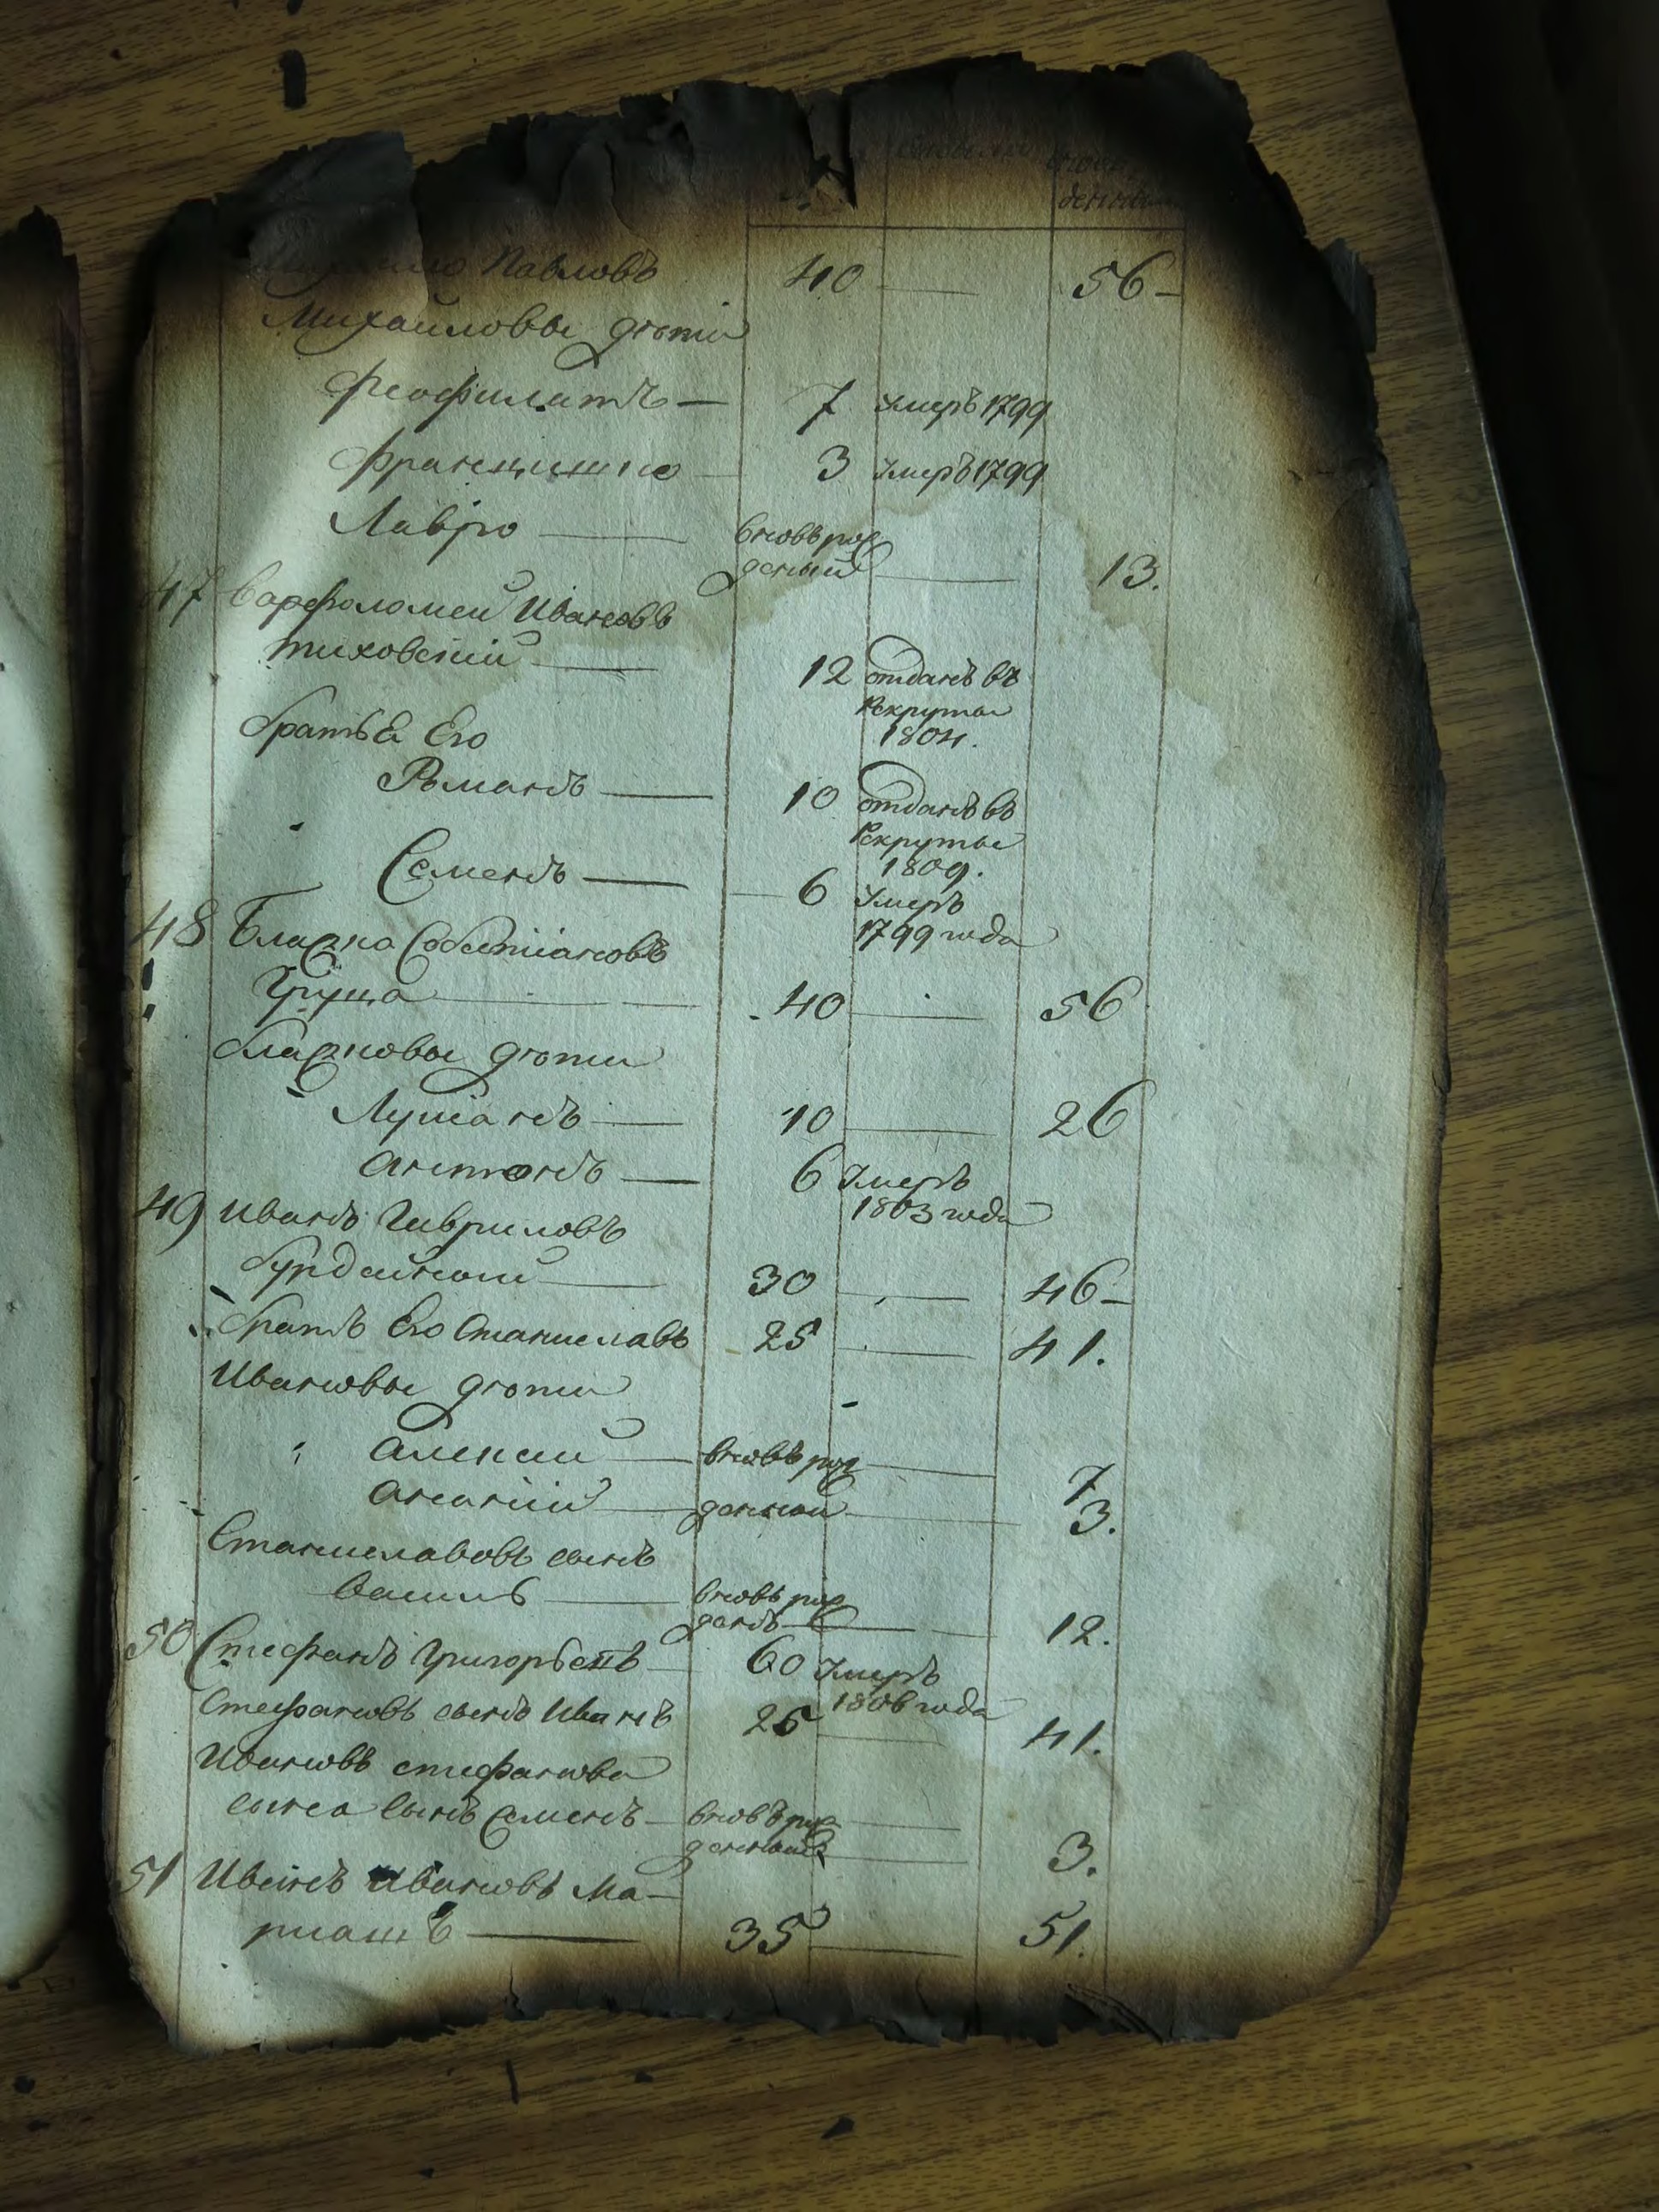 Павловъ 40 — 56 —
Михайловы дѣти
Феофилатъ — 7 умеръ 1799
Францишко 3 умеръ 1799
Лавро — вновь рож
денный — 13.
47 Варфоломей Ивановъ
Тиховскій — 12 отданъ въ
рекруты
1804.
братья Его
Романъ — 10 отданъ въ
рекруты
1809.
Семенъ — 6 умеръ
1799 года
48 Блажко Собестіановъ
Груца — 40 — 56
блажковы дѣти
Луціанъ — 10 — 26
антонъ — 6 умеръ
1803 года
49 иванъ Гавриловъ
бурдейный — 30 — 46 —
братъ Его Станиславъ 25 — 41.
Ивановы дѣти
алексей — вновь рож — 7
ананій — денный — 3.
Станиславовъ сынъ
василь — вновь рож
денъ — 12.
50 Стефанъ Григорьевъ — 60 умеръ
1806 года
Стефановъ сынъ Иванъ 25 — 41.
Ивановъ стефанова
сына сынъ Семенъ — вновь рож —
денный — 3.
51 Иванъ Ивановъ Ма-
ріашъ — 35 — 51.